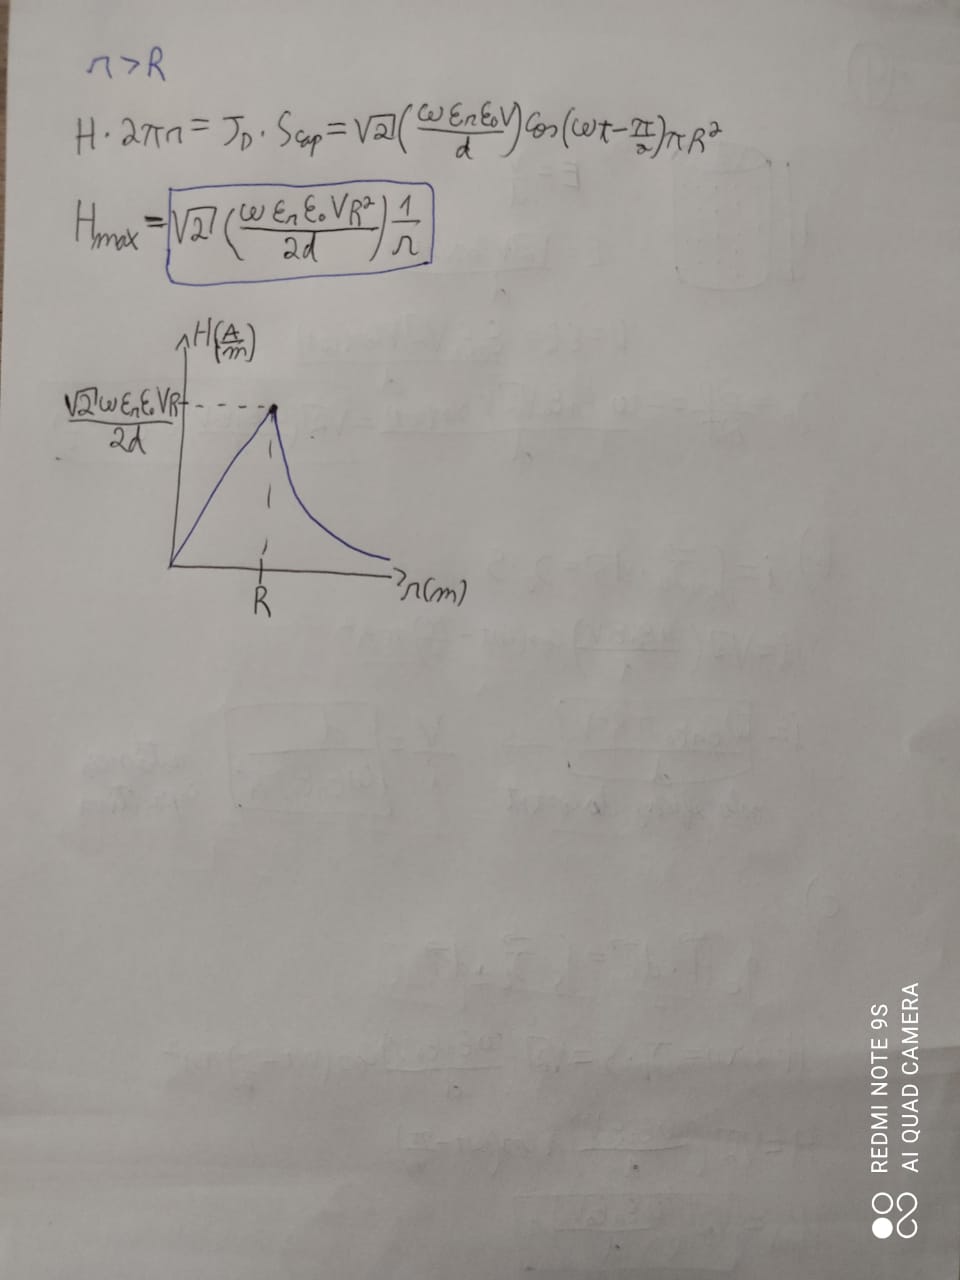 r > R
H · 2πr = J_D · S_cap = √2 (ωε_rε₀V/d) cos(ωt - π/2) πR²
H_max = √2 (ωε_rε₀VR²/2d) 1/r
H(A/m)
√2 ωε_rε₀VR/2d
R
r(m)
REDMI NOTE 9S
AI QUAD CAMERA